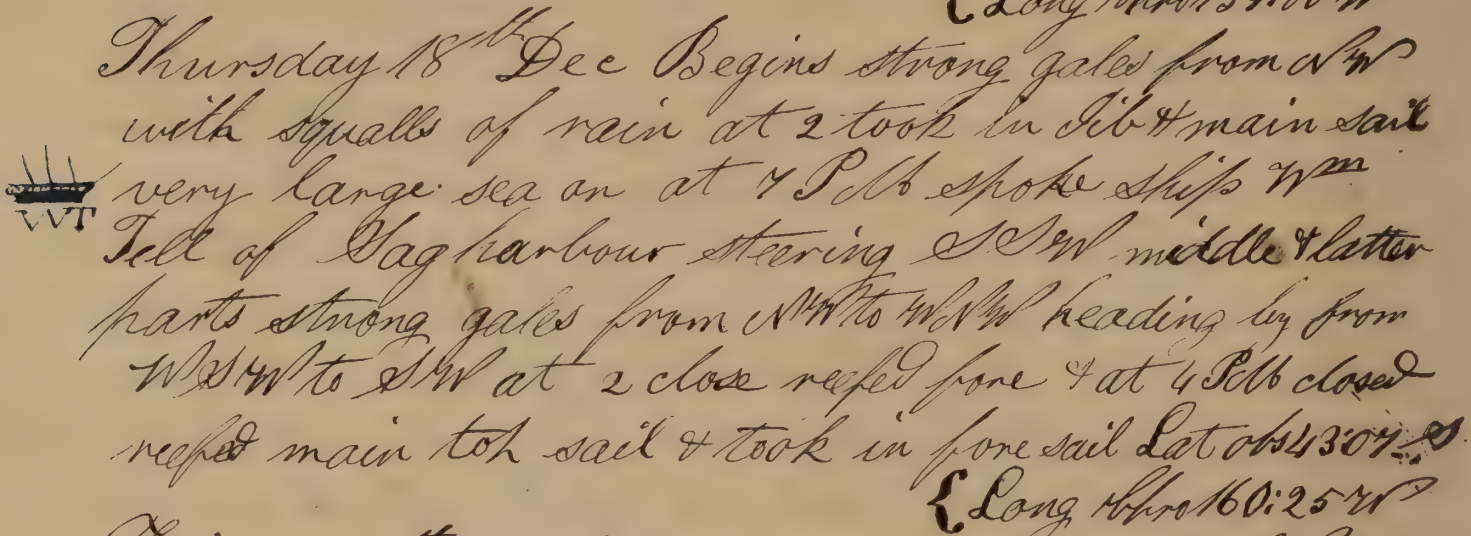 {Long
Thursday 18th Dec Begins strong gales from NW
with squalls of rain at 2 took in Jib & main sail
very large sea on at 7 PM spoke ship Wm
WT
Tell of Sag harbour steering SSW middle & latter
parts strong gales from NW to WNW heading by from
WSW to SW at 2 close reefed fore & at 4 PM closed
reefed main toh sail & took in fore sail Lat obs 43:07 S
{Long Chro 160:25 W